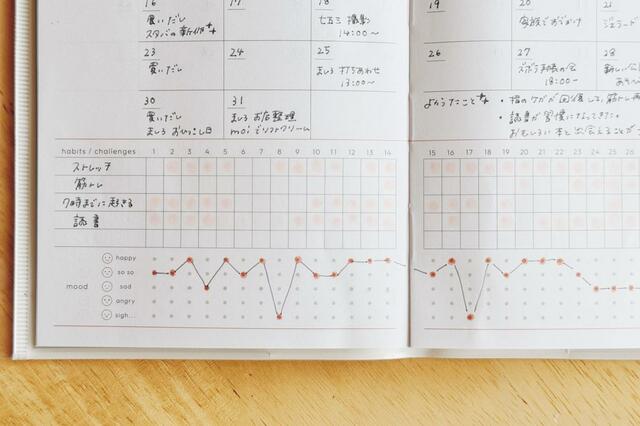 16 17 18
買いだし 七五三 撮影
スタバの新作 14:00〜
23 24 25
買いだし ましろ 打ちあわせ
13:00〜
30 31
買いだし ましろ お店整理
ましろ おひっこし日 moi でソフトクリーム
habits / challenges 1 2 3 4 5 6 7 8 9 10 11 12 13 14
ストレッチ
筋トレ
7時までに起きる
読書
mood
happy
so so
sad
angry
sigh...
19 20 21
家族でおでかけ ジェラード
26 27 28
ズボラ手帳の会
18:00〜
よかったこと ・指のケガが回復して、筋トレ再
・読書が習慣になってきた。
おもしろい本と出会えることが
15 16 17 18 19 20 21 22 23 24 25 26